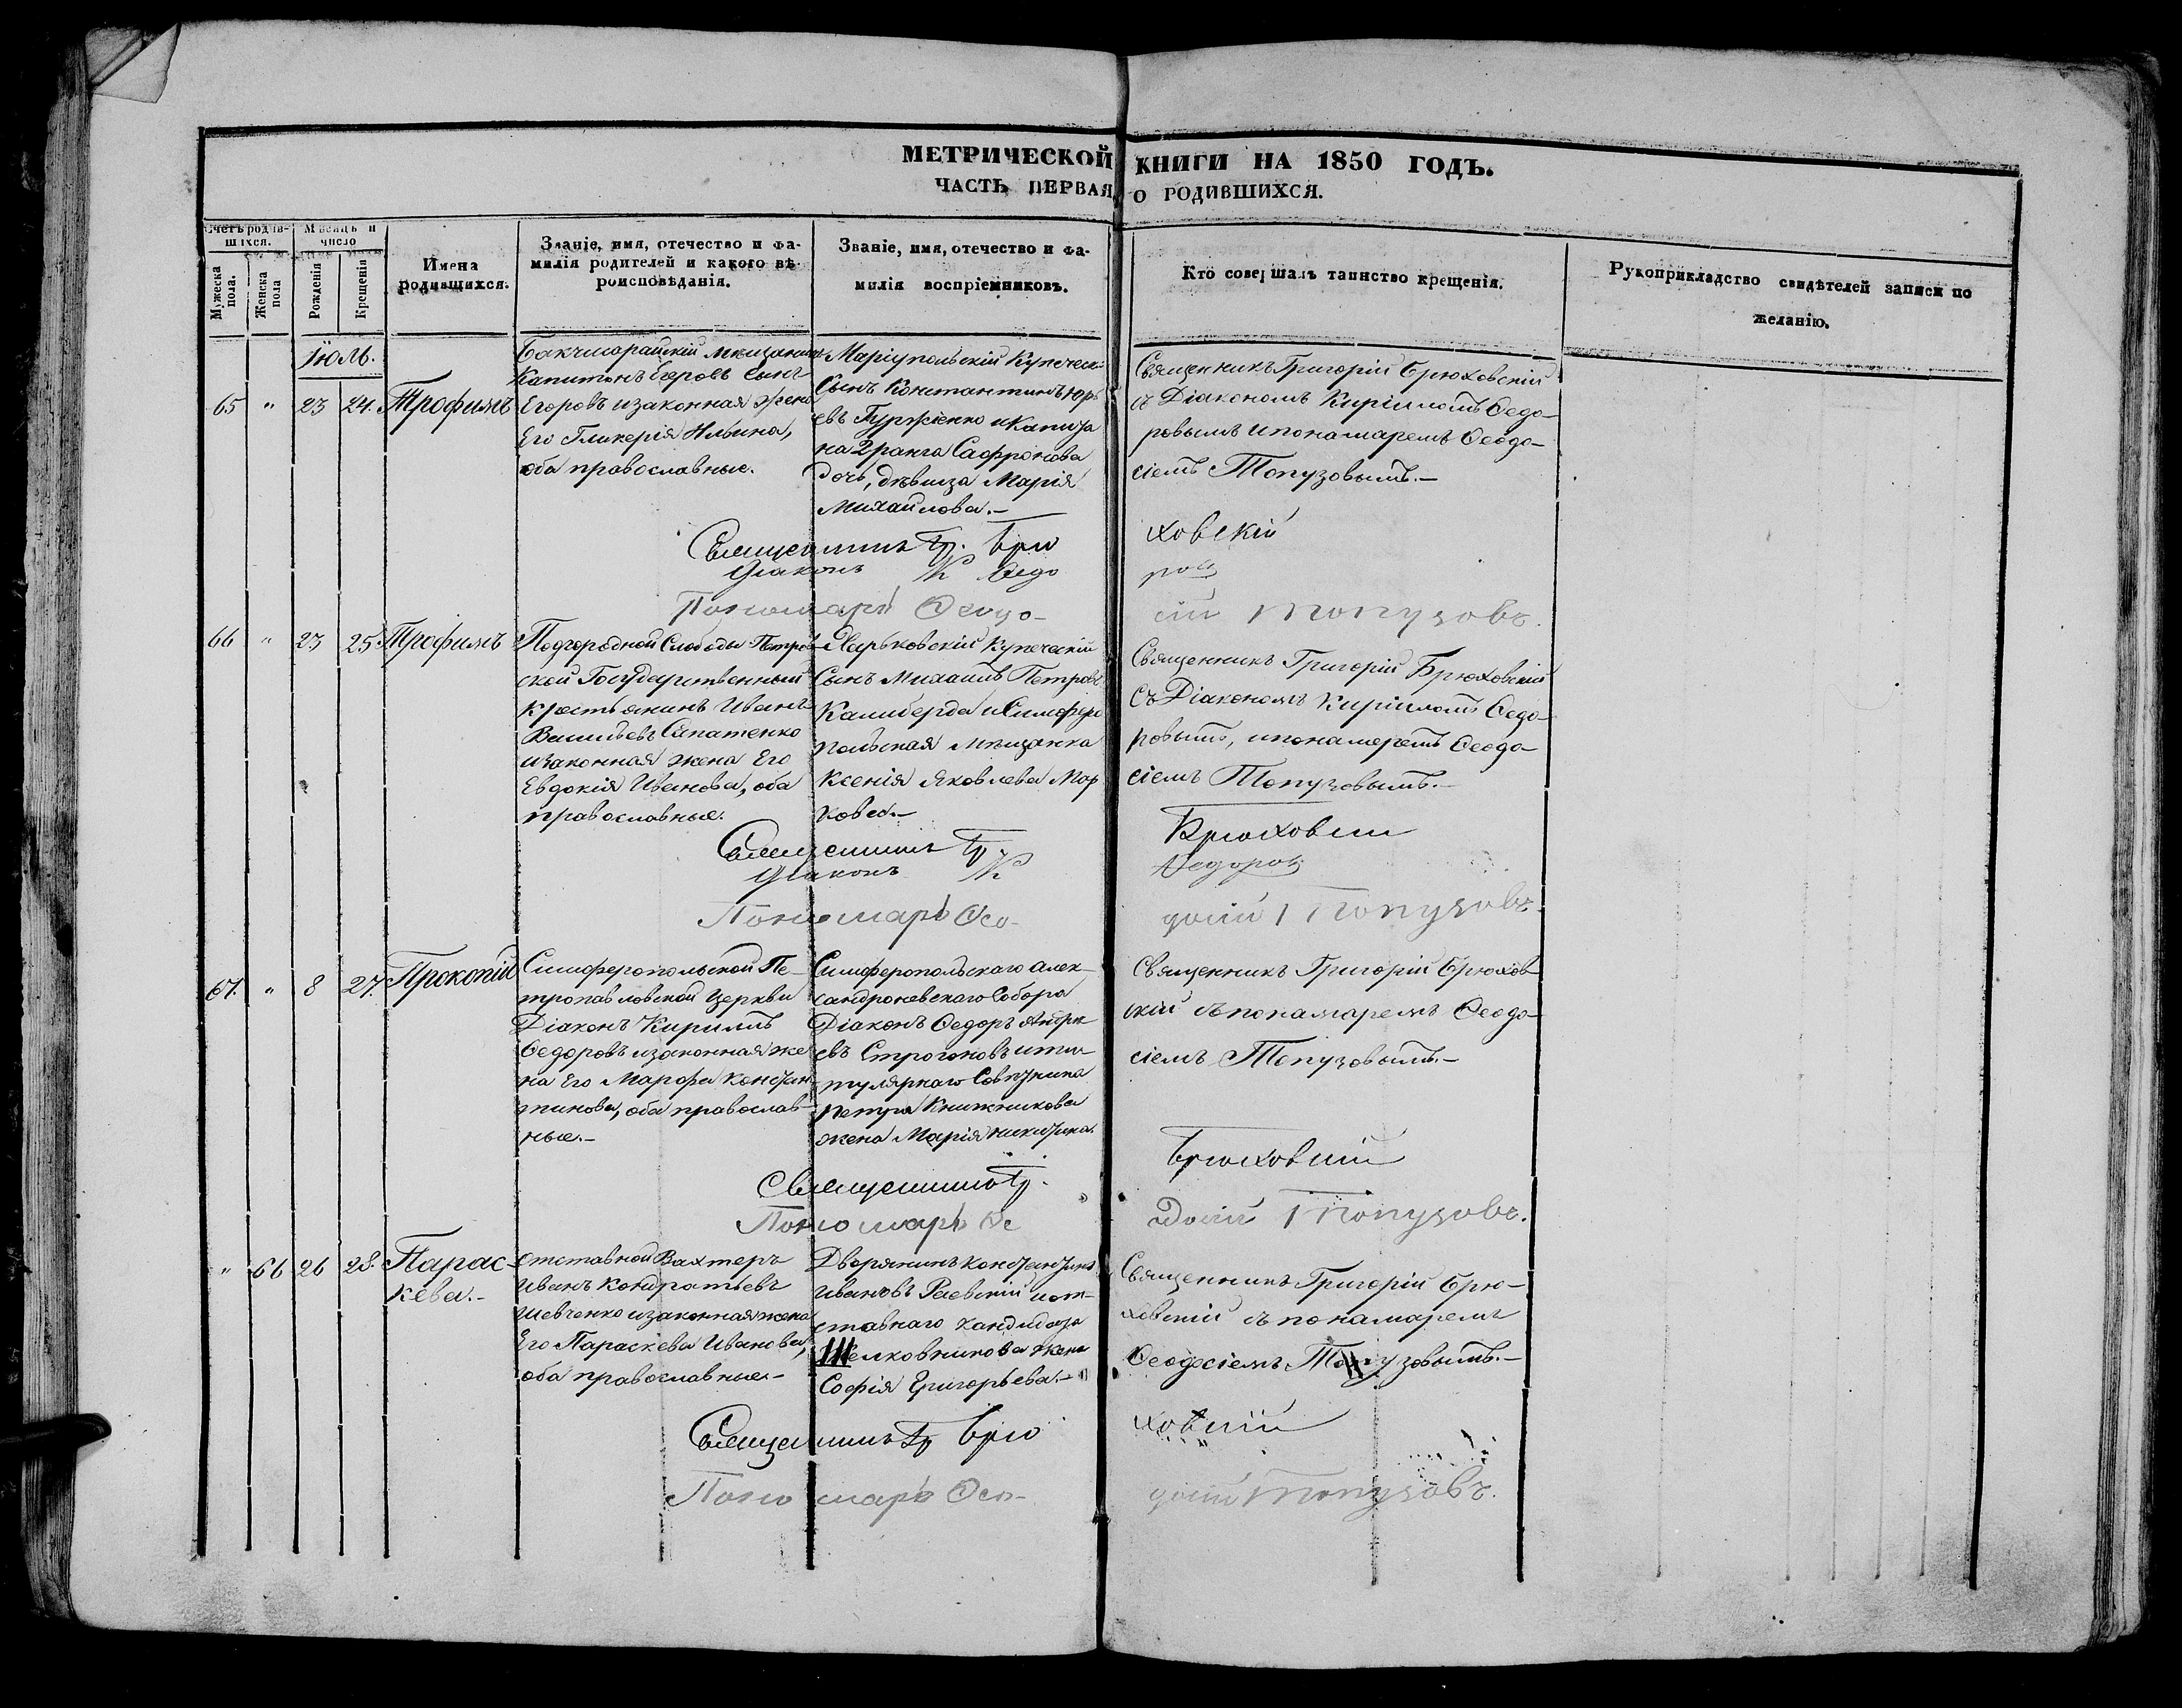 МЕТРИЧЕСКОЙ КНИГИ НА 1850 ГОДЪ.
ЧАСТЬ ПЕРВАЯ О РОДИВШИХСЯ.
Счетъ родив-
шихся.
Мужеска пола.
Женска пола
Мѣсяцъ и
число
Рожденія
Крещенія
Имена
родившихся.
Званіе, имя, отечество и фа-
милія родителей и какого вѣ-
роисповѣданія.
Званіе, имя, отечество и фа-
милія воспріемниковъ.
Кто совершалъ таинство крещенія.
Рукоприкладство свидѣтелей записи по
желанію.
Іюль.
65 " 23 24. Трофимъ
Бакчисарайскій мѣщанинъ
Капитонъ Егоровъ сынъ
Егоровъ изаконная жена
Его Гликерія Ильина,
оба православные.
Маріупольскій Купеческ:
Сынъ Константинъ Юрь
евъ Гуржіенко иКапита
на 2 ранга Сафронова
дочь, дѣвица Марія
Михайлова.-
Священникъ Григорій Брюховскій
съ Діакономъ Кирилломъ Ѳедо-
ровымъ ипонамаремъ Ѳеодо-
сіемъ Топузовымъ.-
Священникъ Гр. Брюховскій
Діаконъ К Ѳедоров
Пономарь Ѳеодосій Топузовъ.
66 " 23 25 Трофимъ
Подгородной Слободы Петров
ской Государственный
крестьянинъ Иванъ
Васильевъ Сипатенко
изаконная жена Его
Евдокія Иванова, оба
православные.
Харьковскій Купеческій
Сынъ Михаилъ Петровъ
Калиберда иСимферо
польская мѣщанка
Ксенія Яковлева Мар
кова.-
Священникъ Григорій Брюховскій
Съ Діакономъ Кирилломъ Ѳедо-
ровымъ, ипонамаремъ Ѳеодо-
сіемъ Топузовымъ.-
Священникъ Гр Брюховскій
Діаконъ К Ѳедоров
Пономарь Ѳеодосій Топузовъ.
67. " 8 27. Прокопій
Симферопольской Пе-
тропавловской Церкви
Діаконъ Кириллъ
Ѳедоровъ изаконная же
на Его Марфа Констан
тинова, оба православ-
ные.-
Симферопольскаго Алек-
сандроневскаго Собора
Діаконъ Ѳедоръ Андре
евъ Строгоновъ ити-
тулярнаго Совѣтника
Петра Книжникова
жена Марія Никитина.
Священникъ Григорій Брюхов
скій съ понамаремъ Ѳеодо-
сіемъ Топузовымъ.-
Священникъ Гр. Брюховскій
Пономарь Ѳеодосій Топузовъ.
" 66 26 28. Парас-
кева.-
Отставной Вахтеръ
Иванъ Кондратьевъ
Шевченко изаконная жена
Его Параскева Иванова,
оба православные.-
Дворянинъ Константинъ
Ивановъ Раевскій иот-
ставнаго Кандидата
Шелковникова жена
Софія Григорьева.-
Священникъ Григорій Брю-
ховскій съ понамаремъ
Ѳеодосіемъ Топузовымъ.-
Священникъ Гр Брюховскій
Пономарь Ѳеодосій Топузовъ.